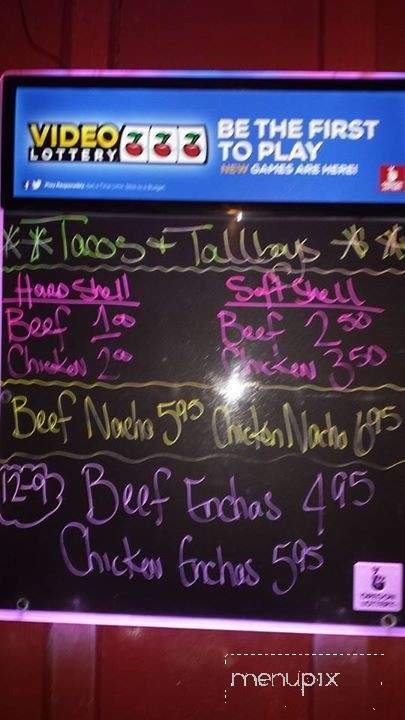 VIDEO LOTTERY
BE THE FIRST
TO PLAY
NEW GAMES ARE HERE!
**Tacos + Tallboys **
Hard Shell Soft Shell
Beef 1.00 Beef 2 50
Chicken 2 00 Chicken 3 50
Beef Nacho 5 95 Chicken Nacho 6 95
12-9 Beef Enchas 4 95
Chicken Enchas 5 95
OREGON
LOTTERY
menupix